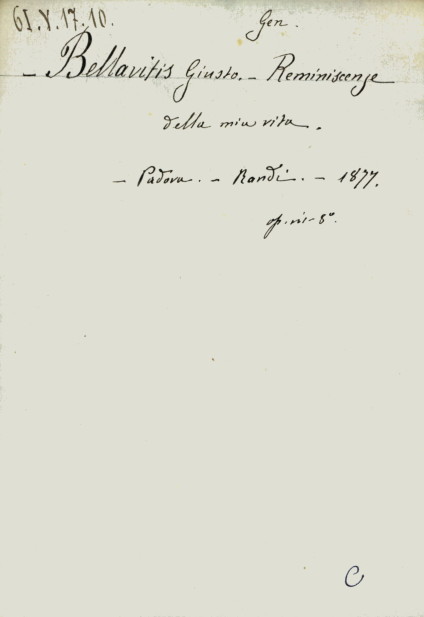 61.V.17.10.
Gen.
- Bellavitis Giusto. - Reminiscenze
della mia vita.
- Padova. - Randi. - 1877.
op. in-8°.
C